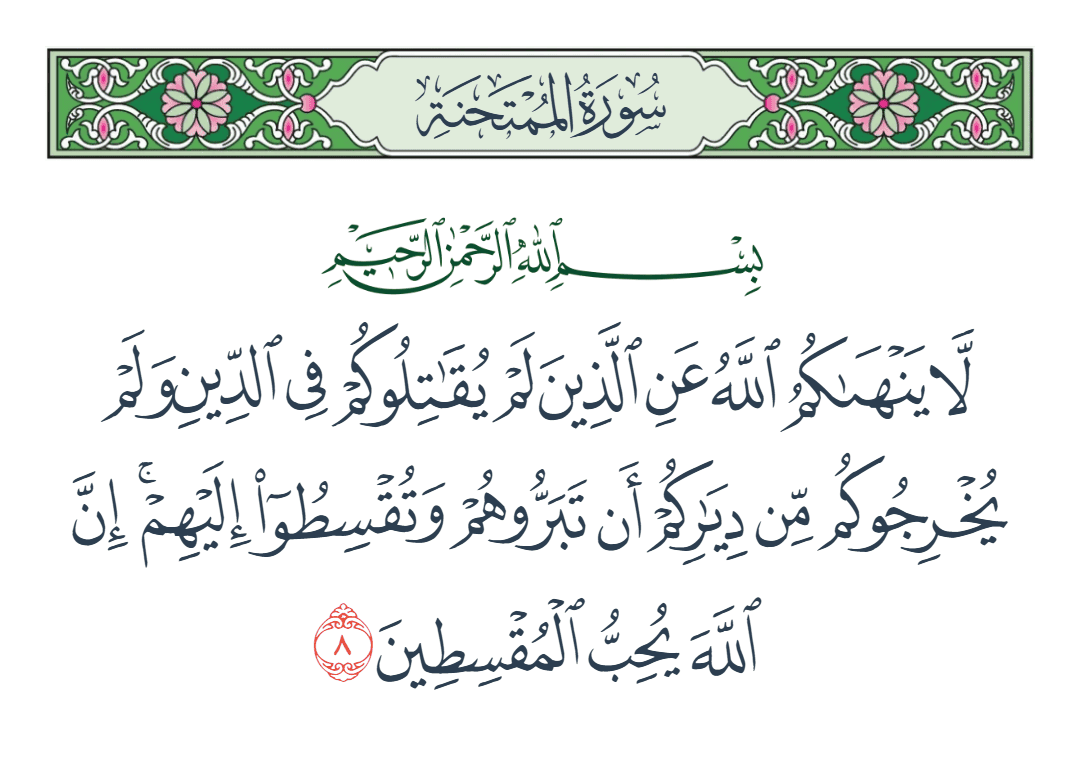 سُورَةُ الْمُمْتَحَنَةِ
بِسْمِ ٱللَّهِ ٱلرَّحْمَٰنِ ٱلرَّحِيمِ
لَّا يَنْهَىٰكُمُ ٱللَّهُ عَنِ ٱلَّذِينَ لَمْ يُقَٰتِلُوكُمْ فِى ٱلدِّينِ وَلَمْ
يُخْرِجُوكُم مِّن دِيَٰرِكُمْ أَن تَبَرُّوهُمْ وَتُقْسِطُوٓا۟ إِلَيْهِمْ ۚ إِنَّ
ٱللَّهَ يُحِبُّ ٱلْمُقْسِطِينَ ٨